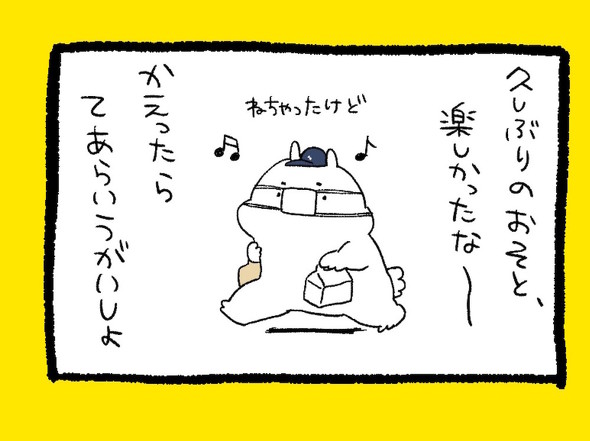 久しぶりのおそと、
楽しかったな〜
ねちゃったけど
かえったら
てあらいうがいしよ